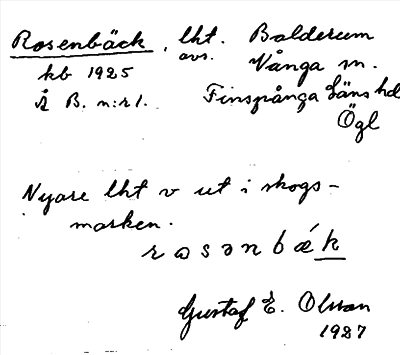 Rosenbäck, lht. Balderum
avs.
kb 1925 Vånga sn.
å B. n:r 1. Finspånga Läns hd
Ögl
Nyare lht v ut i skogs-
marken.
rosənbǽk
Gustaf E. Olsson
1927